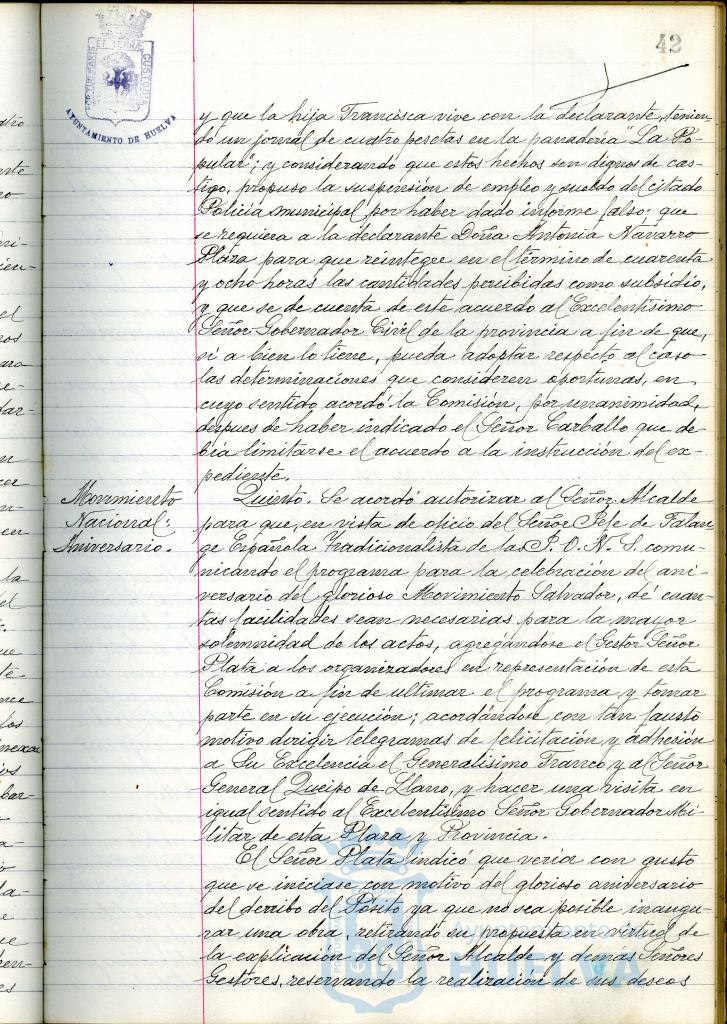 42
PORTUS MARIS ET TERRAE CUSTODIA
AYUNTAMIENTO DE HUELVA
y que la hija Francisca vive con la declarante, tenien-
do un jornal de cuatro pesetas en la panadería "La Po-
pular"; y considerando que estos hechos son dignos de cas-
tigo, propuso la suspensión de empleo y sueldo del citado
Policía municipal por haber dado informe falso; que
se requiera a la declarante Doña Antonia Navarro
Plaza para que reintegre en el término de cuarenta
y ocho horas las cantidades percibidas como subsidio,
y que se de cuenta de este acuerdo al Excelentísimo
Señor Gobernador Civil de la provincia a fin de que,
si a bien lo tiene, pueda adoptar respecto al caso
las determinaciones que consideren oportunas, en
cuyo sentido acordó la Comisión, por unanimidad,
despues de haber indicado el Señor Carballo que de
bía limitarse el acuerdo a la instrucción del ex-
pediente.
Movimiento
Nacional:
Aniversario.
Quinto. Se acordó autorizar al Señor Alcalde
para que, en vista de oficio del Señor Jefe de Falan
ge Española Tradicionalista de las J. O. N. S. comu-
nicando el programa para la celebración del ani-
versario del glorioso Movimiento Salvador, dé cuan-
tas facilidades sean necesarias para la mayor
solemnidad de los actos, agregándose el Gestor Señor
Plata a los organizadores en representación de esta
Comisión a fin de ultimar el programa y tomar
parte en su ejecución; acordándose con tan fausto
motivo dirigir telegramas de felicitación y adhesión
a Su Excelencia el Generalísimo Franco y al Señor
General Queipo de Llano, y hacer una visita en
igual sentido al Excelentísimo Señor Gobernador Mi-
litar de esta Plaza y Provincia.
El Señor Plata indicó que vería con gusto
que se iniciase con motivo del glorioso aniversario
del derribo del Pósito ya que no sea posible inaugu-
rar una obra, retirando su propuesta en virtud de
la explicación del Señor Alcalde y demás Señores
Gestores, reservando la realización de sus deseos
HUELVA